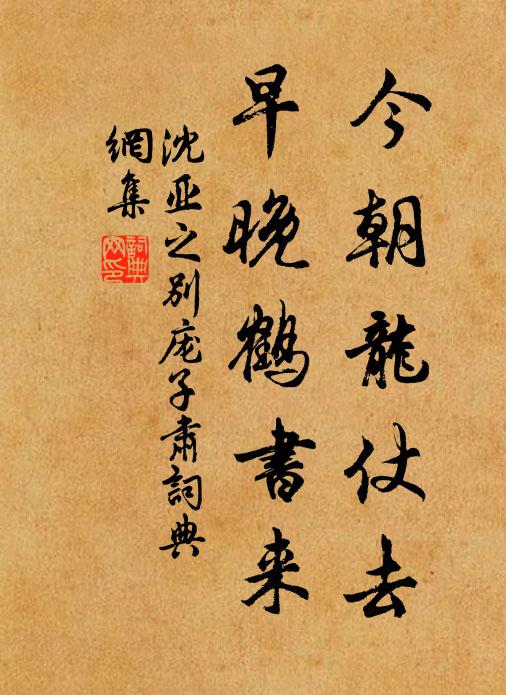 今朝龍仗去
早晚鶴書来
沈亚之别庞子肃詞典
網集
詞典
网印